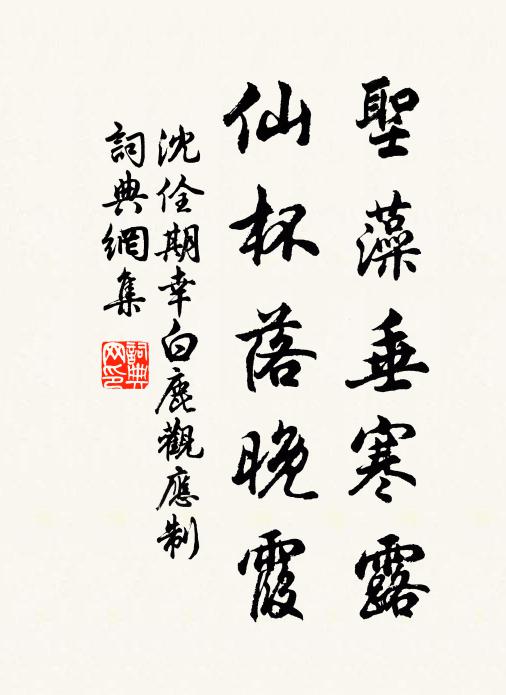 聖藻垂寒露
仙杯落晚霞
沈佺期幸白鹿觀應制
詞典網集
詞典網印